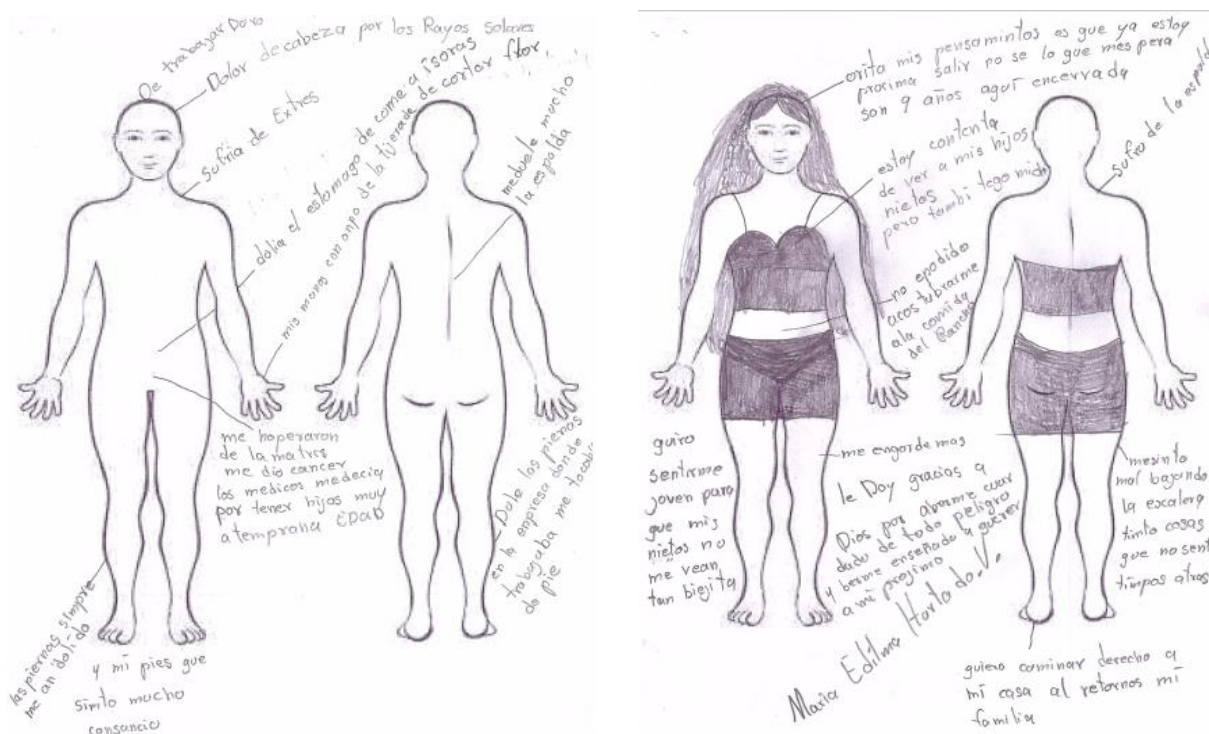 De trabajar Doro
Dolor de cabeza por los Rayos solares
sufria de Extres
dolia el estamago de comer a isoras
mis manos con onpo de la tijera de cortar flor
meduele mucho
la espalda
me hoperaron
de la matris
me dio cancer
los medicos medecia
por tener hijos muy
a temprana EDAD
Dole las piernas
en la enpresa donde
trabajaba me tocaba
de pie
las piernas simpre
me an dolido
y mi pies que
sinto mucho
cansancio
orita mis pensamintos es que ya estoy
procima salir no se lo que mes pera
son 9 años aqui encerrada
estoy contenta
de ver a mis hijos
nietas
pero tambi tego mied
sufro de la espalda
no epodido
acostubrarme
ala comida
del Rancho
me engorde mas
quiro
sentirme
joven para
que mis
nietos no
me vean
tan biejita
le Doy gracias a
Dios por aberme cuar
dado de todo peligro
y berme enseñado a querer
a mi projimo
Maria Edilma Hurtado V.
mesinto
mal bajando
la escalera
tinto cosas
que no sent
timpos atras
quiero caminar derecho a
mi casa al retornos mi
familia